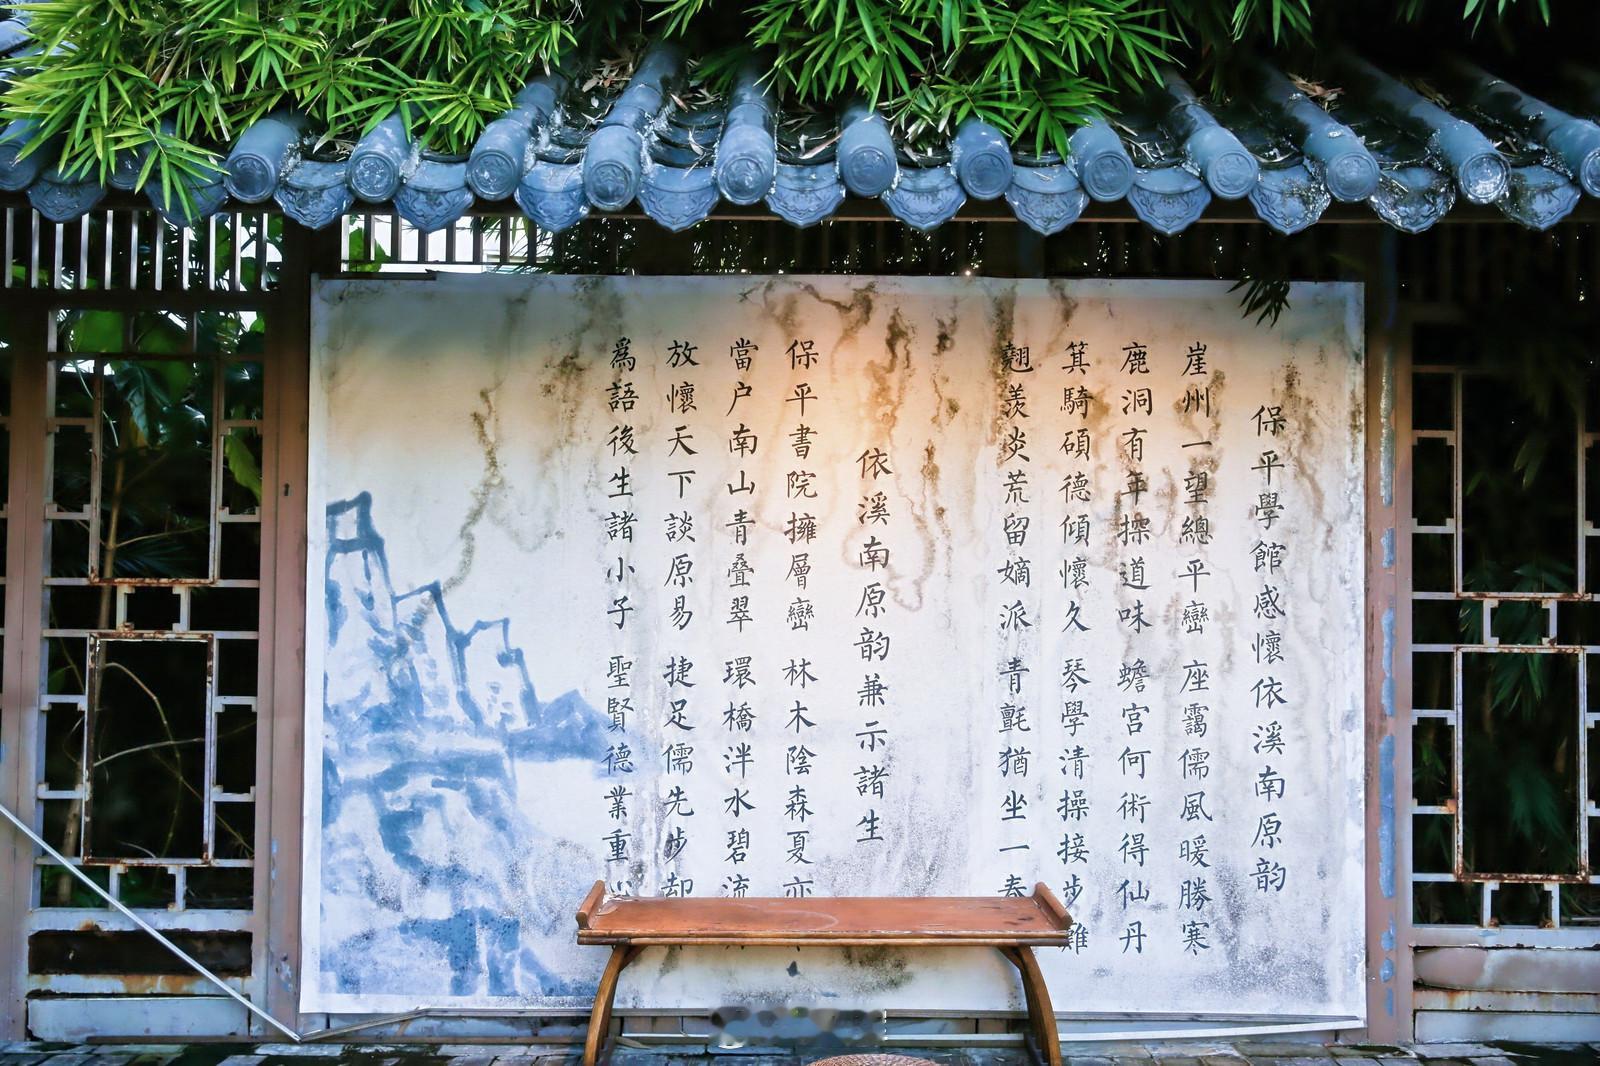 保平學館感懷依溪南原韵
崖州一望總平巒 座靄儒風暖勝寒
鹿洞有年探道味 蟾宮何術得仙丹
箕騎碩德傾懷久 琴學清操接步難
翹羨炎荒留嫡派 青氈猶坐一春
依溪南原韵兼示諸生
保平書院擁層巒 林木陰森夏亦
當户南山青叠翠 環橋泮水碧流
放懷天下談原易 捷足儒先步却
爲語後生諸小子 聖賢德業重